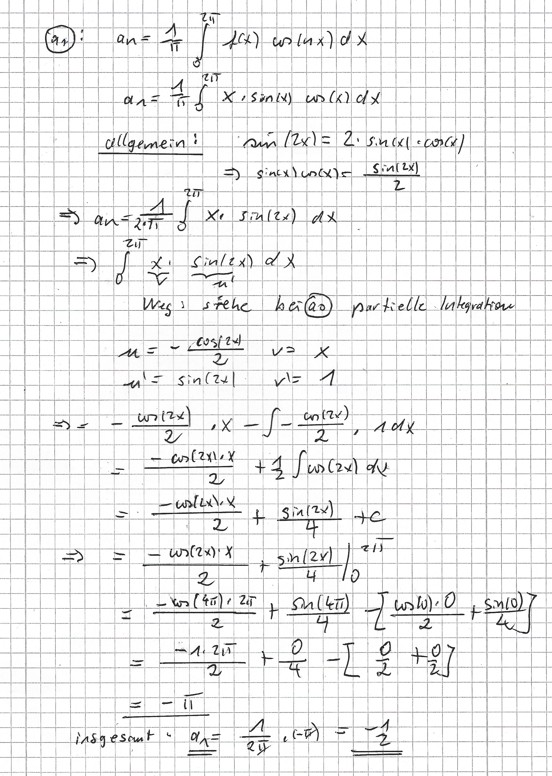 a₁: an = 1/π ∫₀^2π f(x) cos(nx) dx
a₁ = 1/π ∫₀^2π x · sin(x) cos(x) dx
allgemein: sin(2x) = 2 · sin(x) · cos(x)
⇒ sin(x) cos(x) = sin(2x)/2
⇒ an = 1/(2·π) ∫₀^2π x · sin(2x) dx
⇒ ∫₀^2π x · sin(2x) dx
v u'
Weg: siehe bei a₀ partielle Integration
u = - cos(2x)/2 v = x
u' = sin(2x) v' = 1
⇒ = - cos(2x)/2 · x - ∫ - cos(2x)/2 · 1 dx
= - cos(2x) · x / 2 + 1/2 ∫ cos(2x) dx
= - cos(2x) · x / 2 + sin(2x)/4 + C
⇒ = - cos(2x) · x / 2 + sin(2x)/4 |₀^2π
= - cos(4π) · 2π / 2 + sin(4π)/4 - [cos(0) · 0 / 2 + sin(0)/4]
= -1 · 2π / 2 + 0/4 - [0/2 + 0/2]
= - π
insgesamt: a₁ = 1/(2π) · (-π) = -1/2